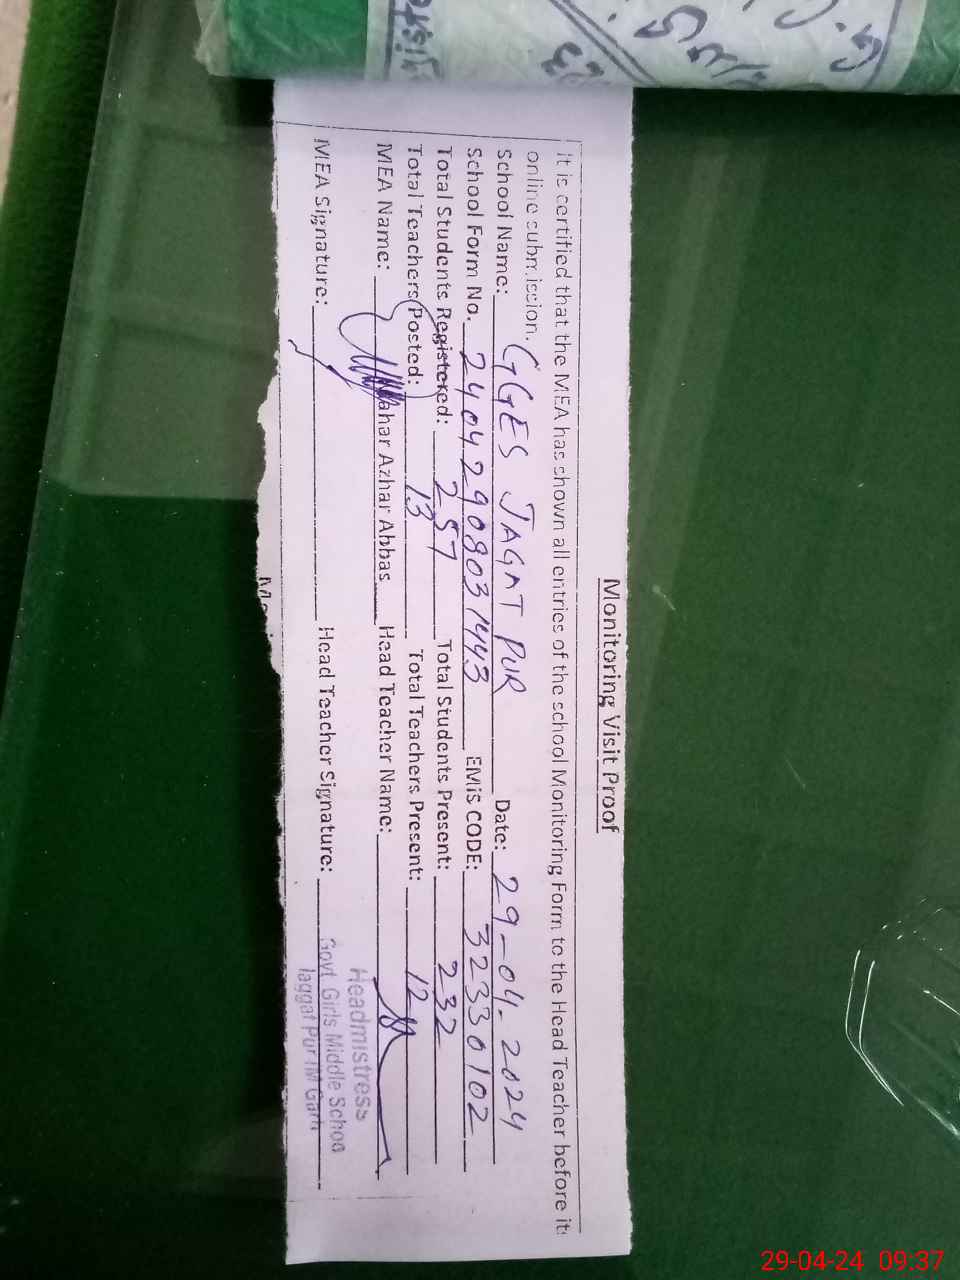 Monitoring Visit Proof
It is certified that the MEA has shown all entries of the school Monitoring Form to the Head Teacher before its
online submission.
School Name: GGES JAGAT PUR Date: 29-04-2024
School Form No. 24042908031443 EMIS CODE: 32330102
Total Students Registered: 257 Total Students Present: 232
Total Teachers Posted: 13 Total Teachers Present: 12
MEA Name: Azhar Abbas Head Teacher Name:
MEA Signature: Head Teacher Signature:
Headmistress
Govt. Girls Middle Schoo
Jaggat Pur M Garh
29-04-24 09:37